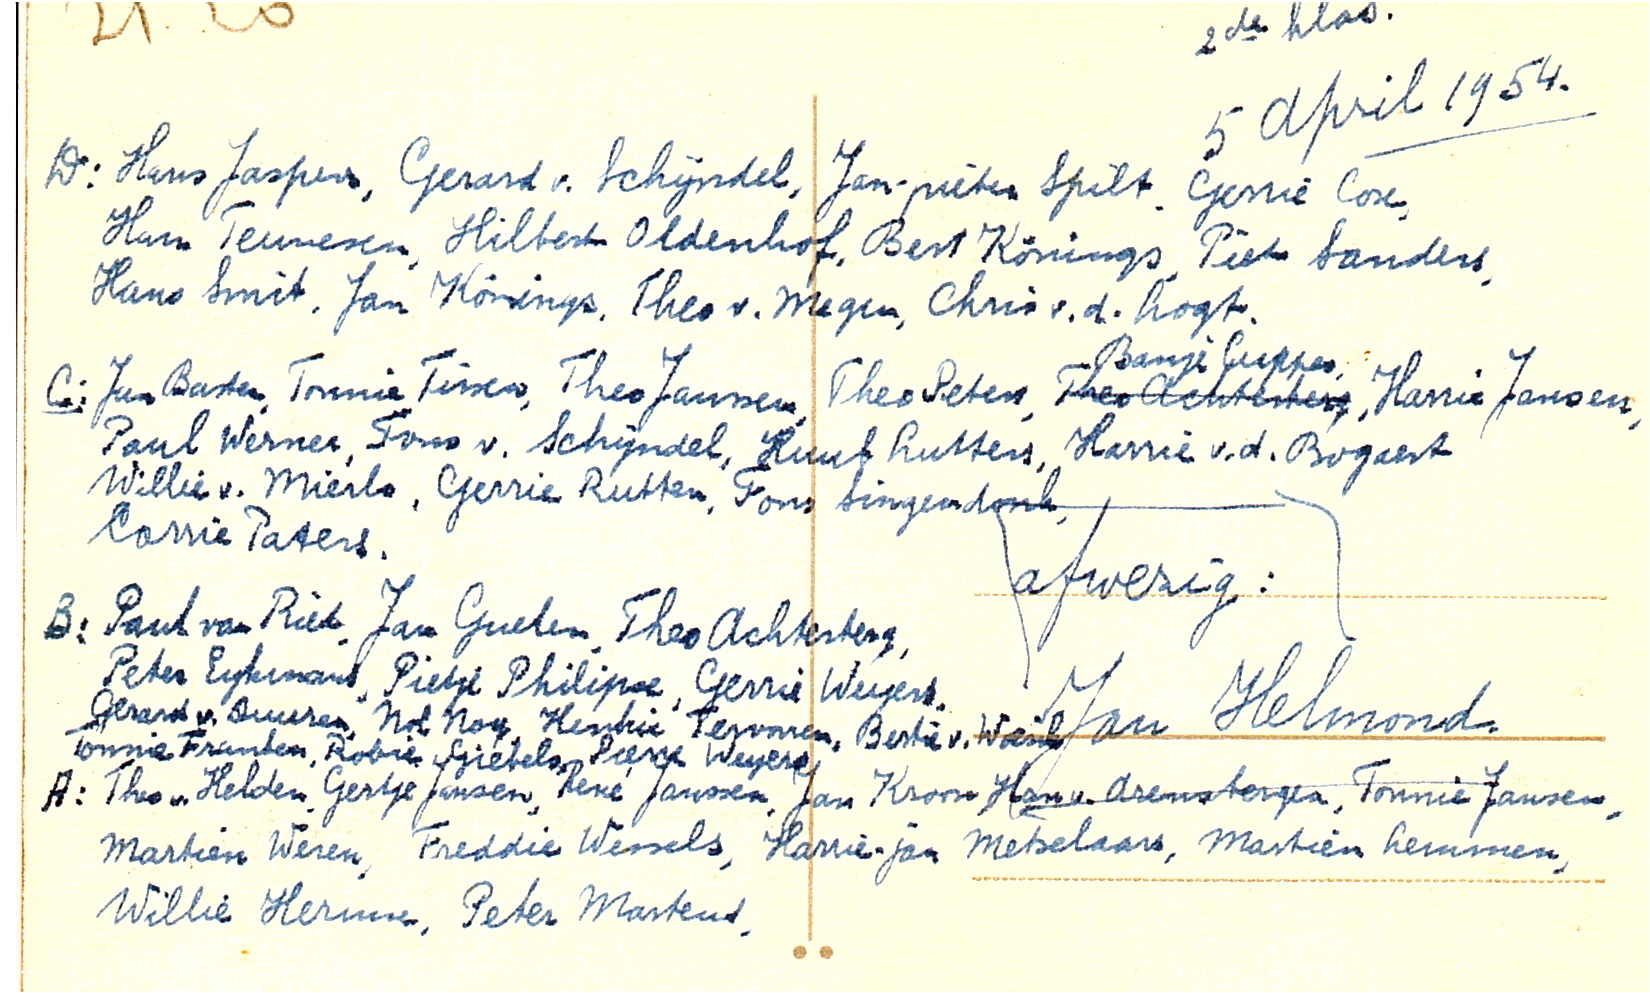 21.26
2de klas.
5 April 1954.
D: Hans Jaspers, Gerard v. Schijndel, Jan-pieter Spilt. Gerrie Cox,
Ham Teunesen, Hilbert Oldenhof, Bert Könings, Piet Sanders,
Hans Smit, Jan Könings, Theo v. Megen, Chris v. d. Logt.
Banji Cuppes,
C: Jan Basten, Tonnie Tissen, Theo Janssen, Theo Peters, Theo Achterberg, Harrie Jansen,
Paul Werner, Fons v. Schijndel, Huub Rutten, Harrie v.d. Bogaert
Willie v. Mierlo, Gerrie Rutten, Fons Singendonk,
Corrie Paters.
afwezig:
B: Paul van Riet, Jan Gielen, Theo Achterberg,
Peter Eykmans, Pietje Philipse, Gerrie Weyers.
Jan Helmond.
Gerard v. Duuren, Not Noy, Henkie Tervoren, Bertie v. Woesik
Tonnie Franken, Robie Giebels, Pierre Weyers
A: Theo v. Helden, Gertje Jansen, René Janssen, Jan Kroon Han v. Arensbergen, Tonnie Jansen,
Martien Weren, Freddie Wessels, Harrie-jan Metselaars, Martien Lemmen,
Willie Hermse, Peter Martens,